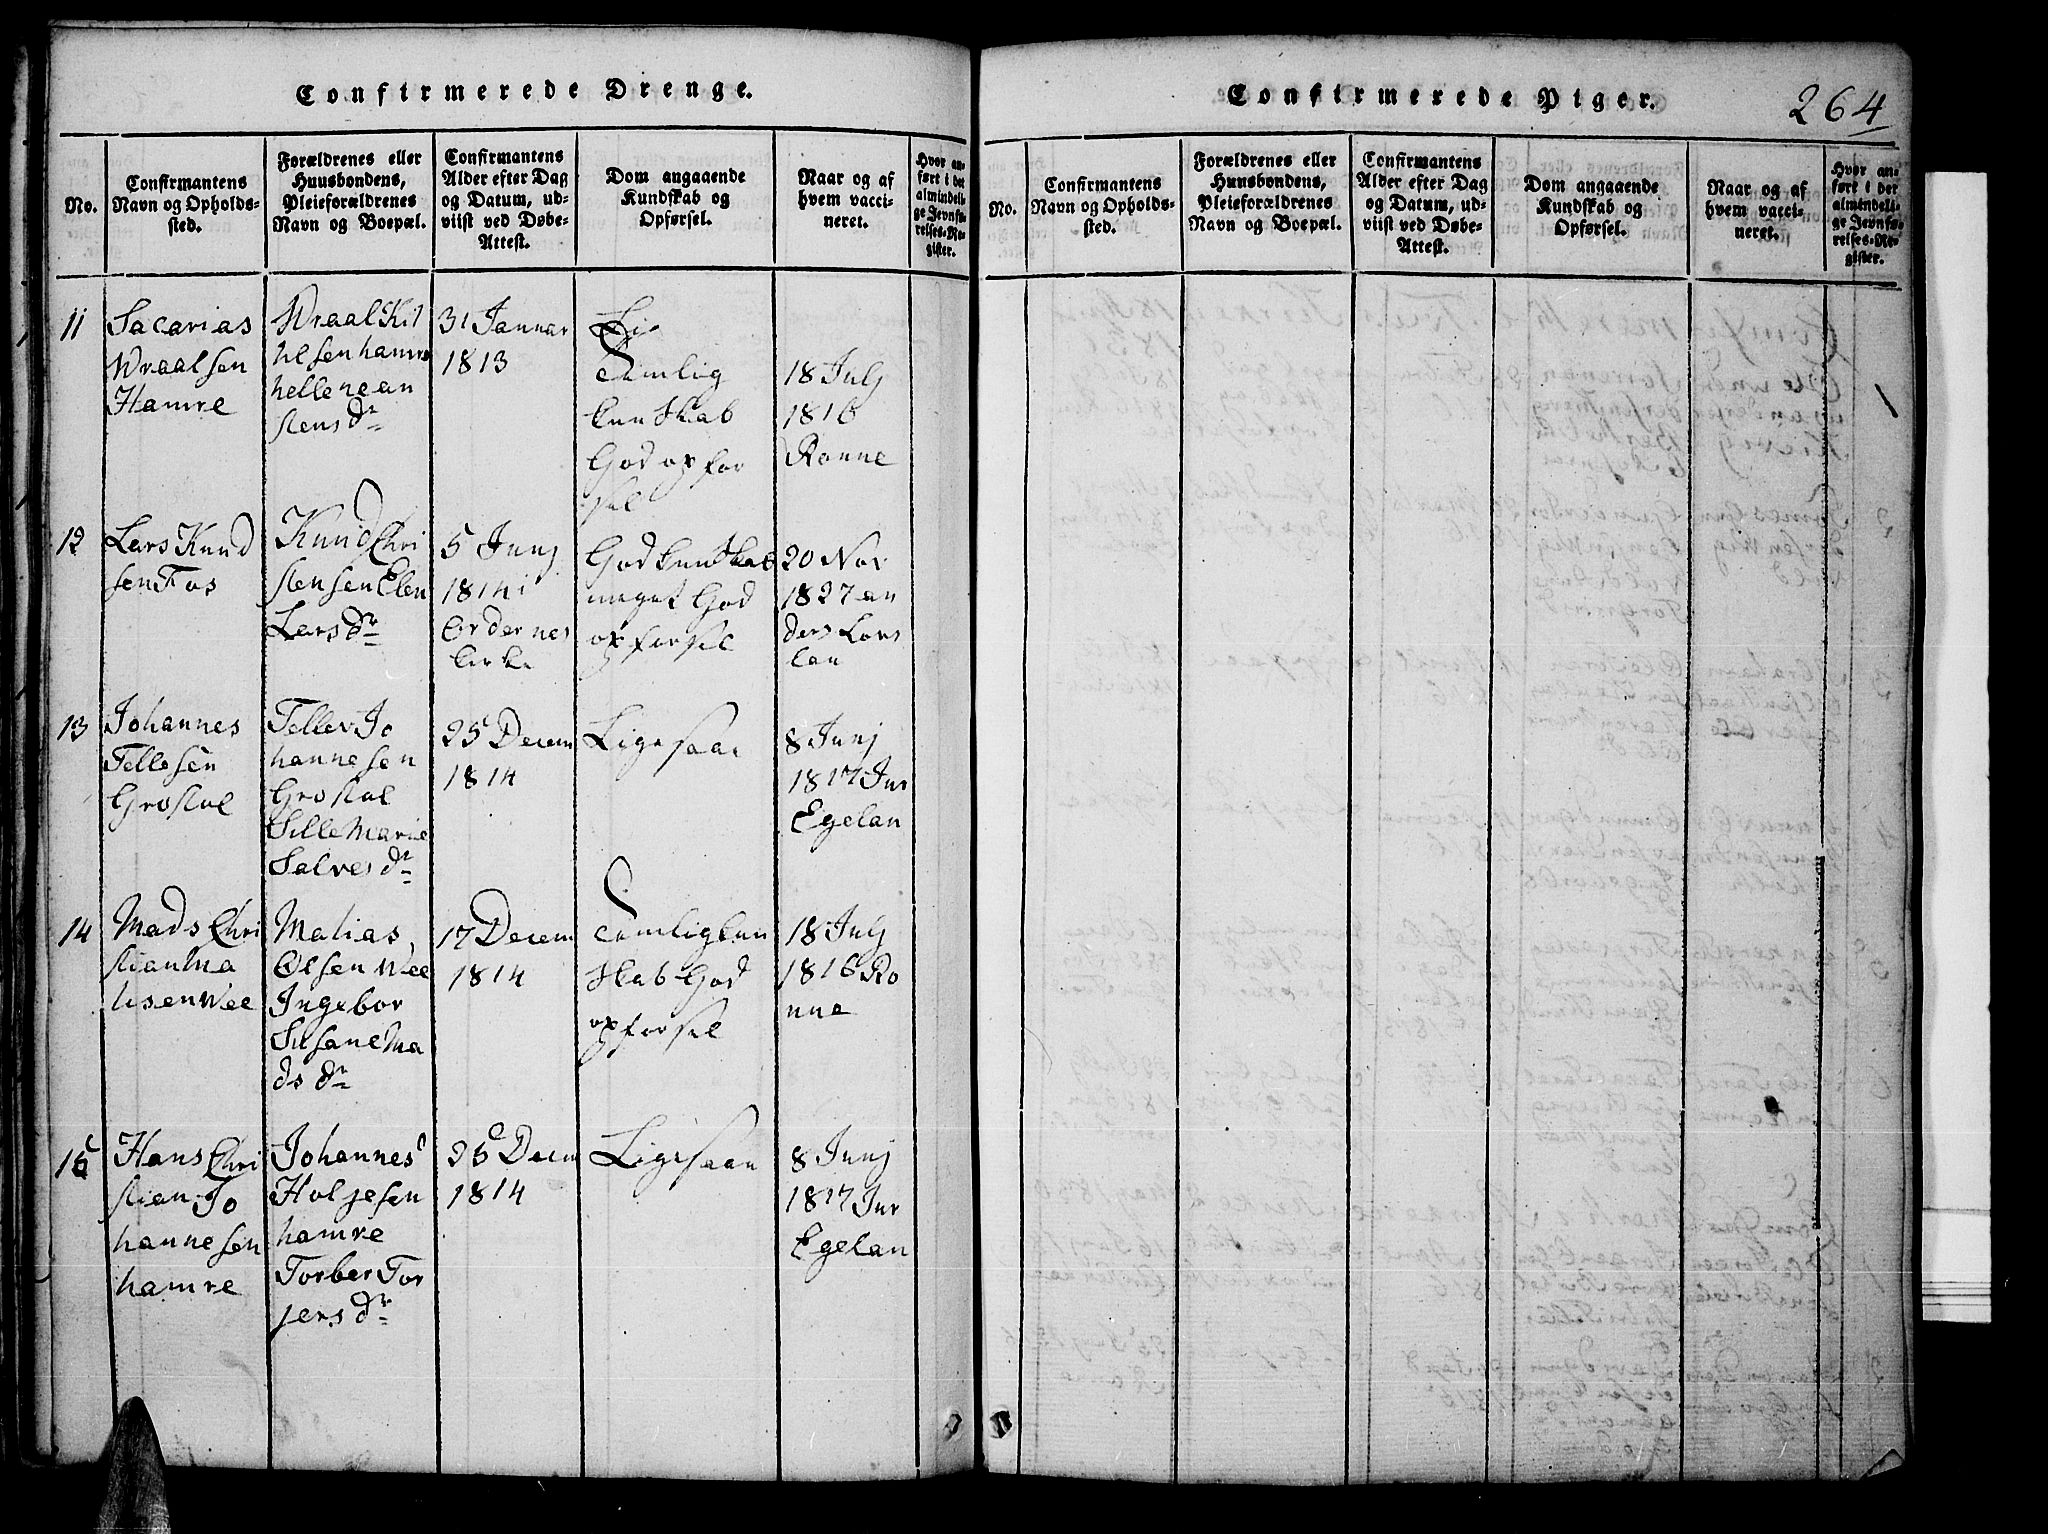 Confirmerede Drenge.
No.
Confirmantens
Navn og Opholds-
sted.
Forældrenes eller
Huusbondens,
Pleieforældrenes
Navn og Boepæl.
Confirmantens
Alder efter Dag
og Datum, ud-
viist ved Døbe-
Attest.
Dom angaaende
Kundskab og
Opførsel.
Naar og af
hvem vacci-
neret.
Hvor an-
ført i det
almindeli-
ge Jevnfø-
relses-Re-
gister.
11
Sacarias
Wraalsen
Hamre
Wraal Kit
helle nean
stens dr
31 Januar
1813
Temlig
kunskab
God opfør
sel
18 Julj
1816
Ronne
12
Lars Knud
sen Fos
Knud Chri
stensen Elen
Lars dr
5 Junj
1814 i
kirke
God kunskab
meget God
opførsel
20 Nov
1827 an
ders Lars
lan
13
Johannes
Tellesen
Grostøl
Tellev Jo
hannesen
Grostøl
Sille Marie
Salves dr
25 Decem
1814
Ligesaa
8 Junj
1817 Jur
Egelan
14
Mads Chri
stian Ma
tisen Wee
Matias
Olsen Wee
Ingebor
Susane Ma
ds dr
17 Decem
1814
Temlig kun
skab God
opførsel
18 Julj
1816 Ro
nne
15
Hans Chri
stian Jo
hannesen
hamre
Johannes
Holjesen
hamre
Torber Tor
jers dr
25 Decem
1814
Ligesaa
8 Junj
1817 Jur
Egelan
Confirmerede Piger.
264
No.
Confirmantens
Navn og Opholds-
sted.
Forældrenes eller
Huusbondens,
Pleieforældrenes
Navn og Boepæl.
Confirmantens
Alder efter Dag
og Datum, ud-
viist ved Døbe-
Attest.
Dom angaaende
Kundskab og
Opførsel.
Naar og af
hvem vacci-
neret.
Hvor an-
ført i det
almindeli-
ge Jevnfø-
relses-Re-
gister.